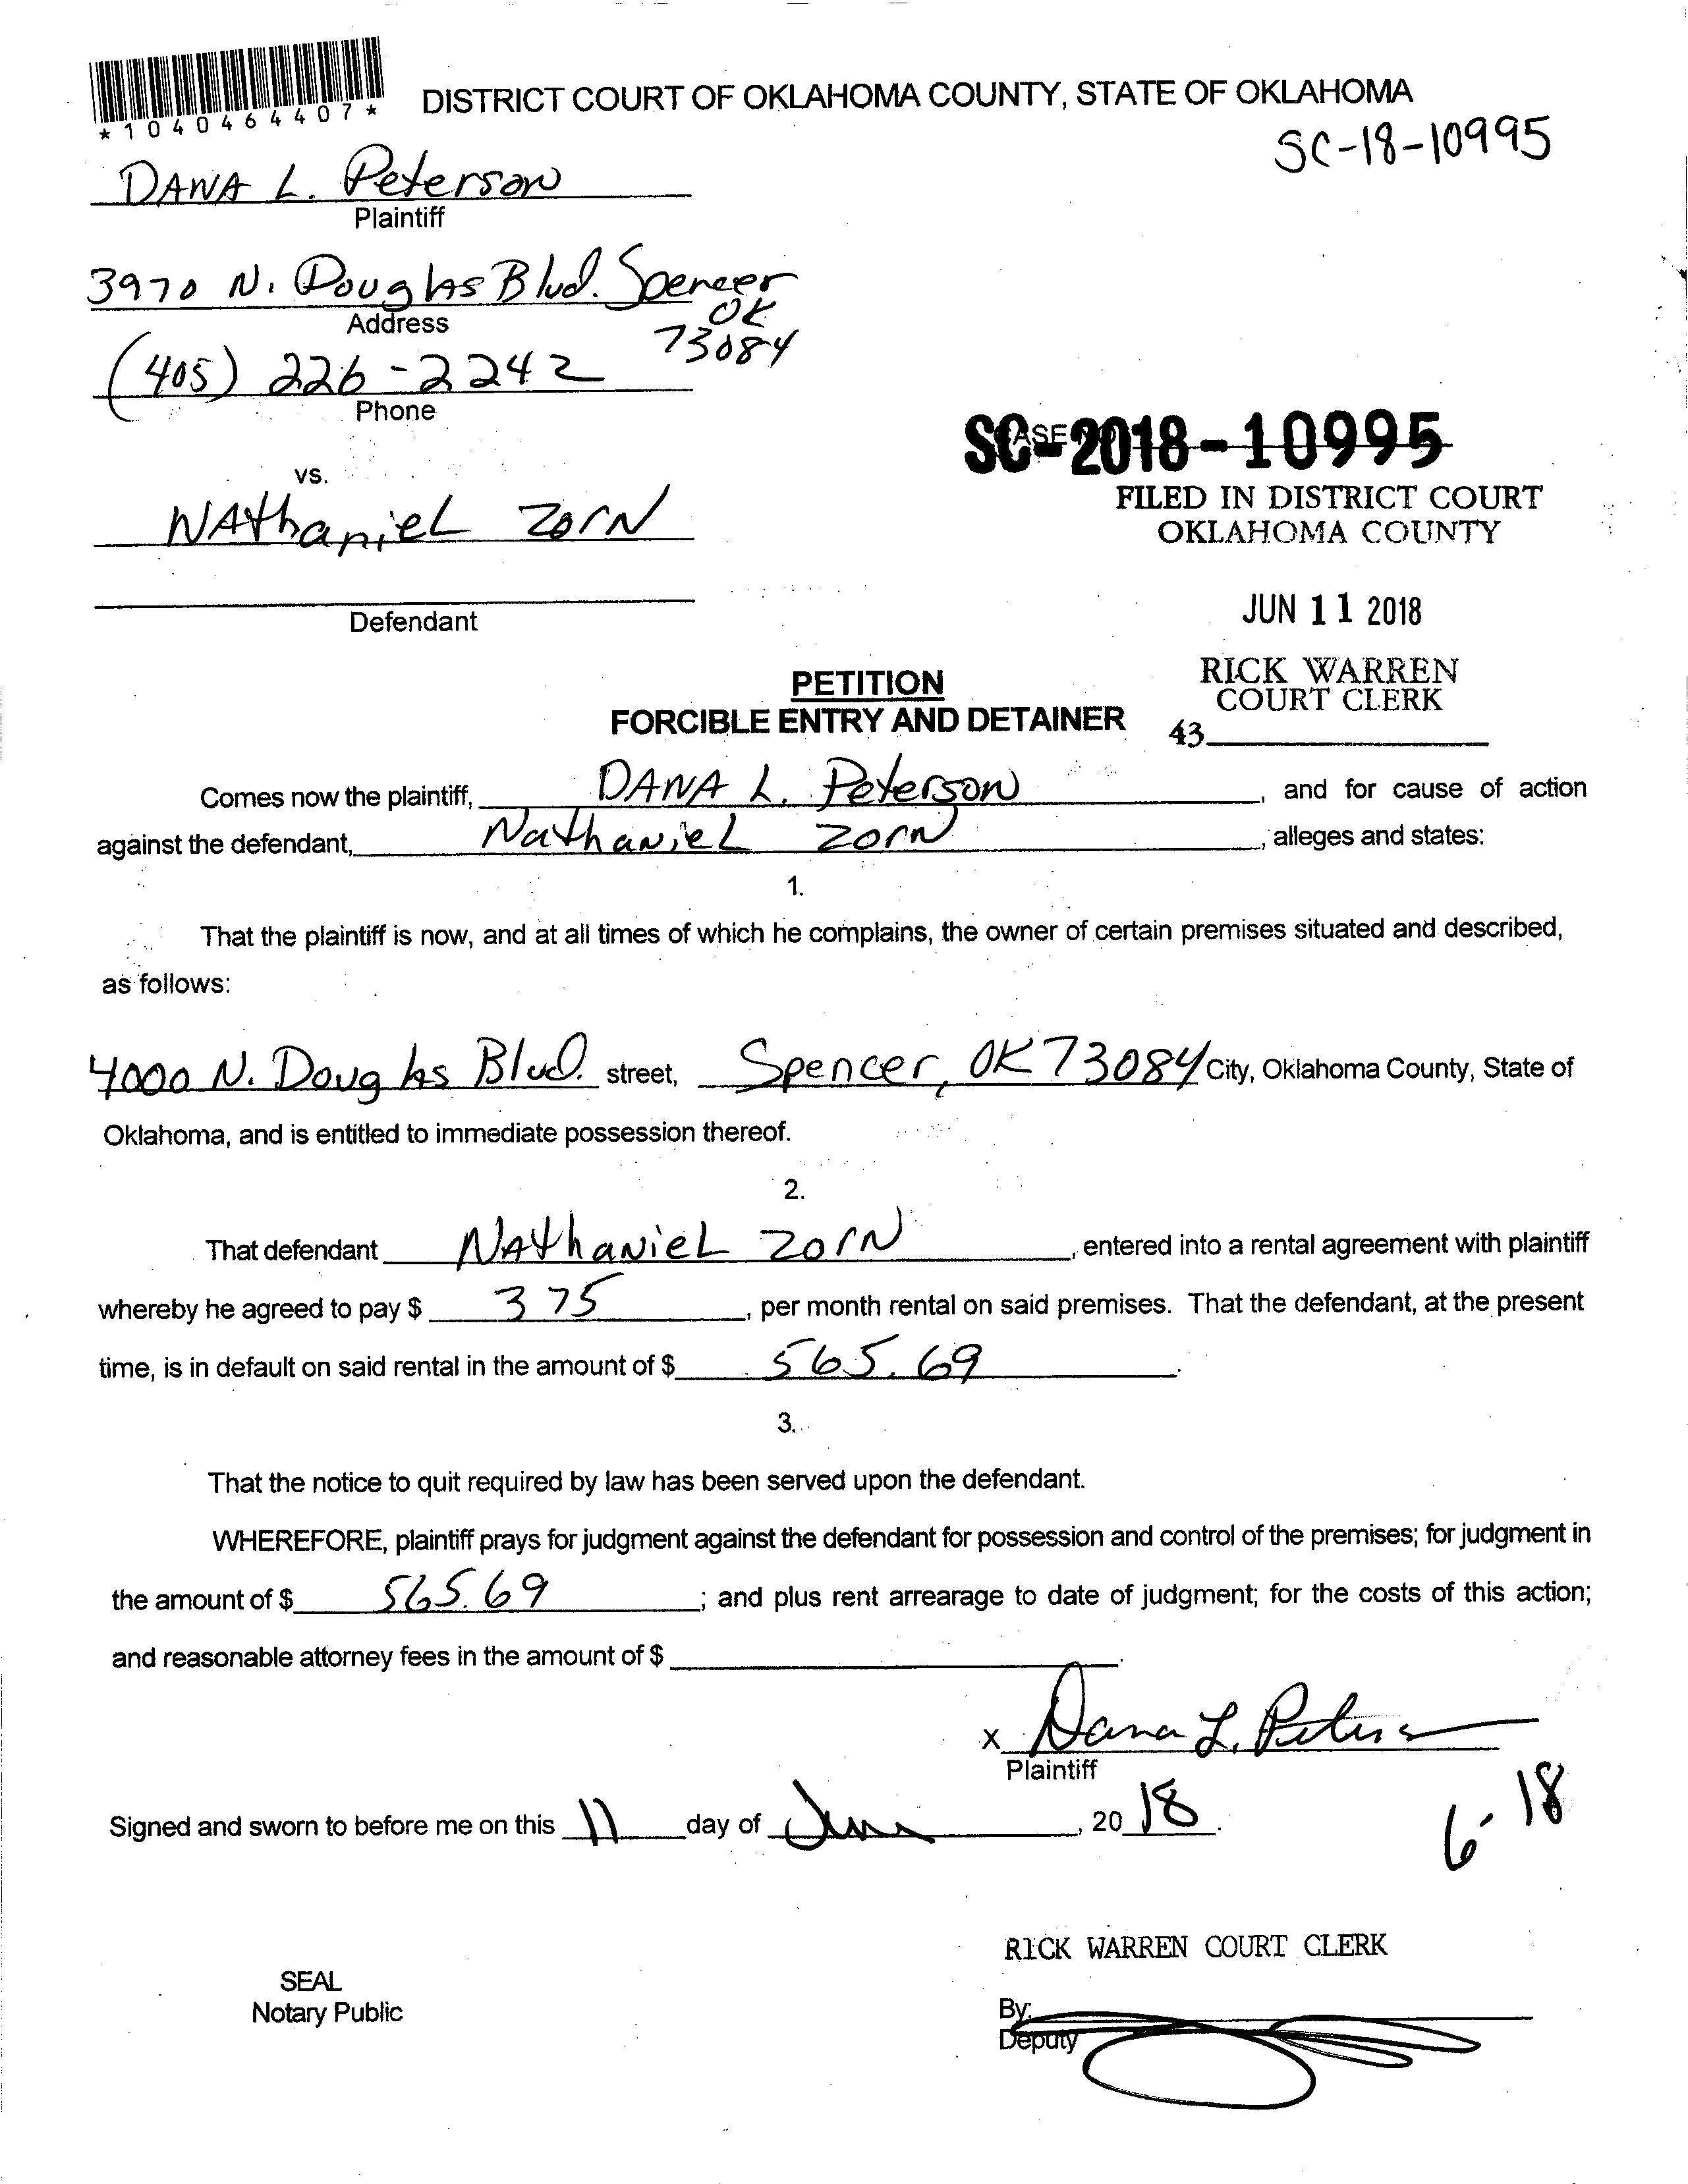 *1040464407*
DISTRICT COURT OF OKLAHOMA COUNTY, STATE OF OKLAHOMA
SC-18-10995
DANA L. Peterson
Plaintiff
3970 N. Douglas Blvd. Spencer
OK
Address
73084
(405) 226-2242
Phone
SC-2018-10995
vs.
FILED IN DISTRICT COURT
OKLAHOMA COUNTY
NAthanieL ZorN
JUN 11 2018
Defendant
RICK WARREN
COURT CLERK
43
PETITION
FORCIBLE ENTRY AND DETAINER
Comes now the plaintiff, DANA L. Peterson, and for cause of action
against the defendant, NathanieL Zorn, alleges and states:
1.
That the plaintiff is now, and at all times of which he complains, the owner of certain premises situated and described,
as follows:
4000 N. Douglas Blvd. street, Spencer, OK 73084 City, Oklahoma County, State of
Oklahoma, and is entitled to immediate possession thereof.
2.
That defendant NAthanieL ZorN, entered into a rental agreement with plaintiff
whereby he agreed to pay $ 375, per month rental on said premises. That the defendant, at the present
time, is in default on said rental in the amount of $ 565.69.
3.
That the notice to quit required by law has been served upon the defendant.
WHEREFORE, plaintiff prays for judgment against the defendant for possession and control of the premises; for judgment in
the amount of $ 565.69; and plus rent arrearage to date of judgment; for the costs of this action;
and reasonable attorney fees in the amount of $ .
X Dana L. Peterson
Plaintiff
Signed and sworn to before me on this 11 day of June, 20 18.
6-18
RICK WARREN COURT CLERK
SEAL
Notary Public
By:
Deputy